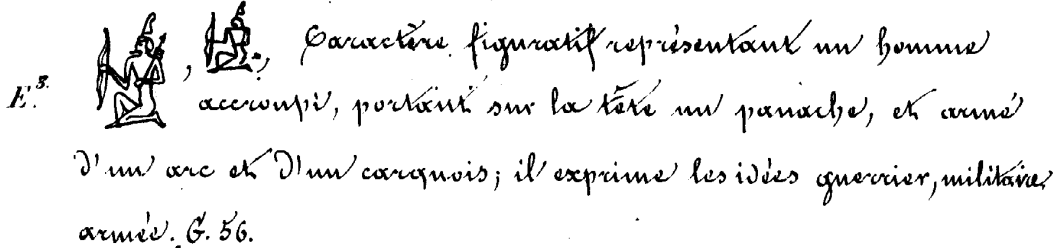 , , Caractère figuratif représentant un homme
E.³· accroupi, portant sur la tête un panache, et armé
d'un arc et d'un carquois; il exprime les idées guerrier, militaire,
armée. G. 56.